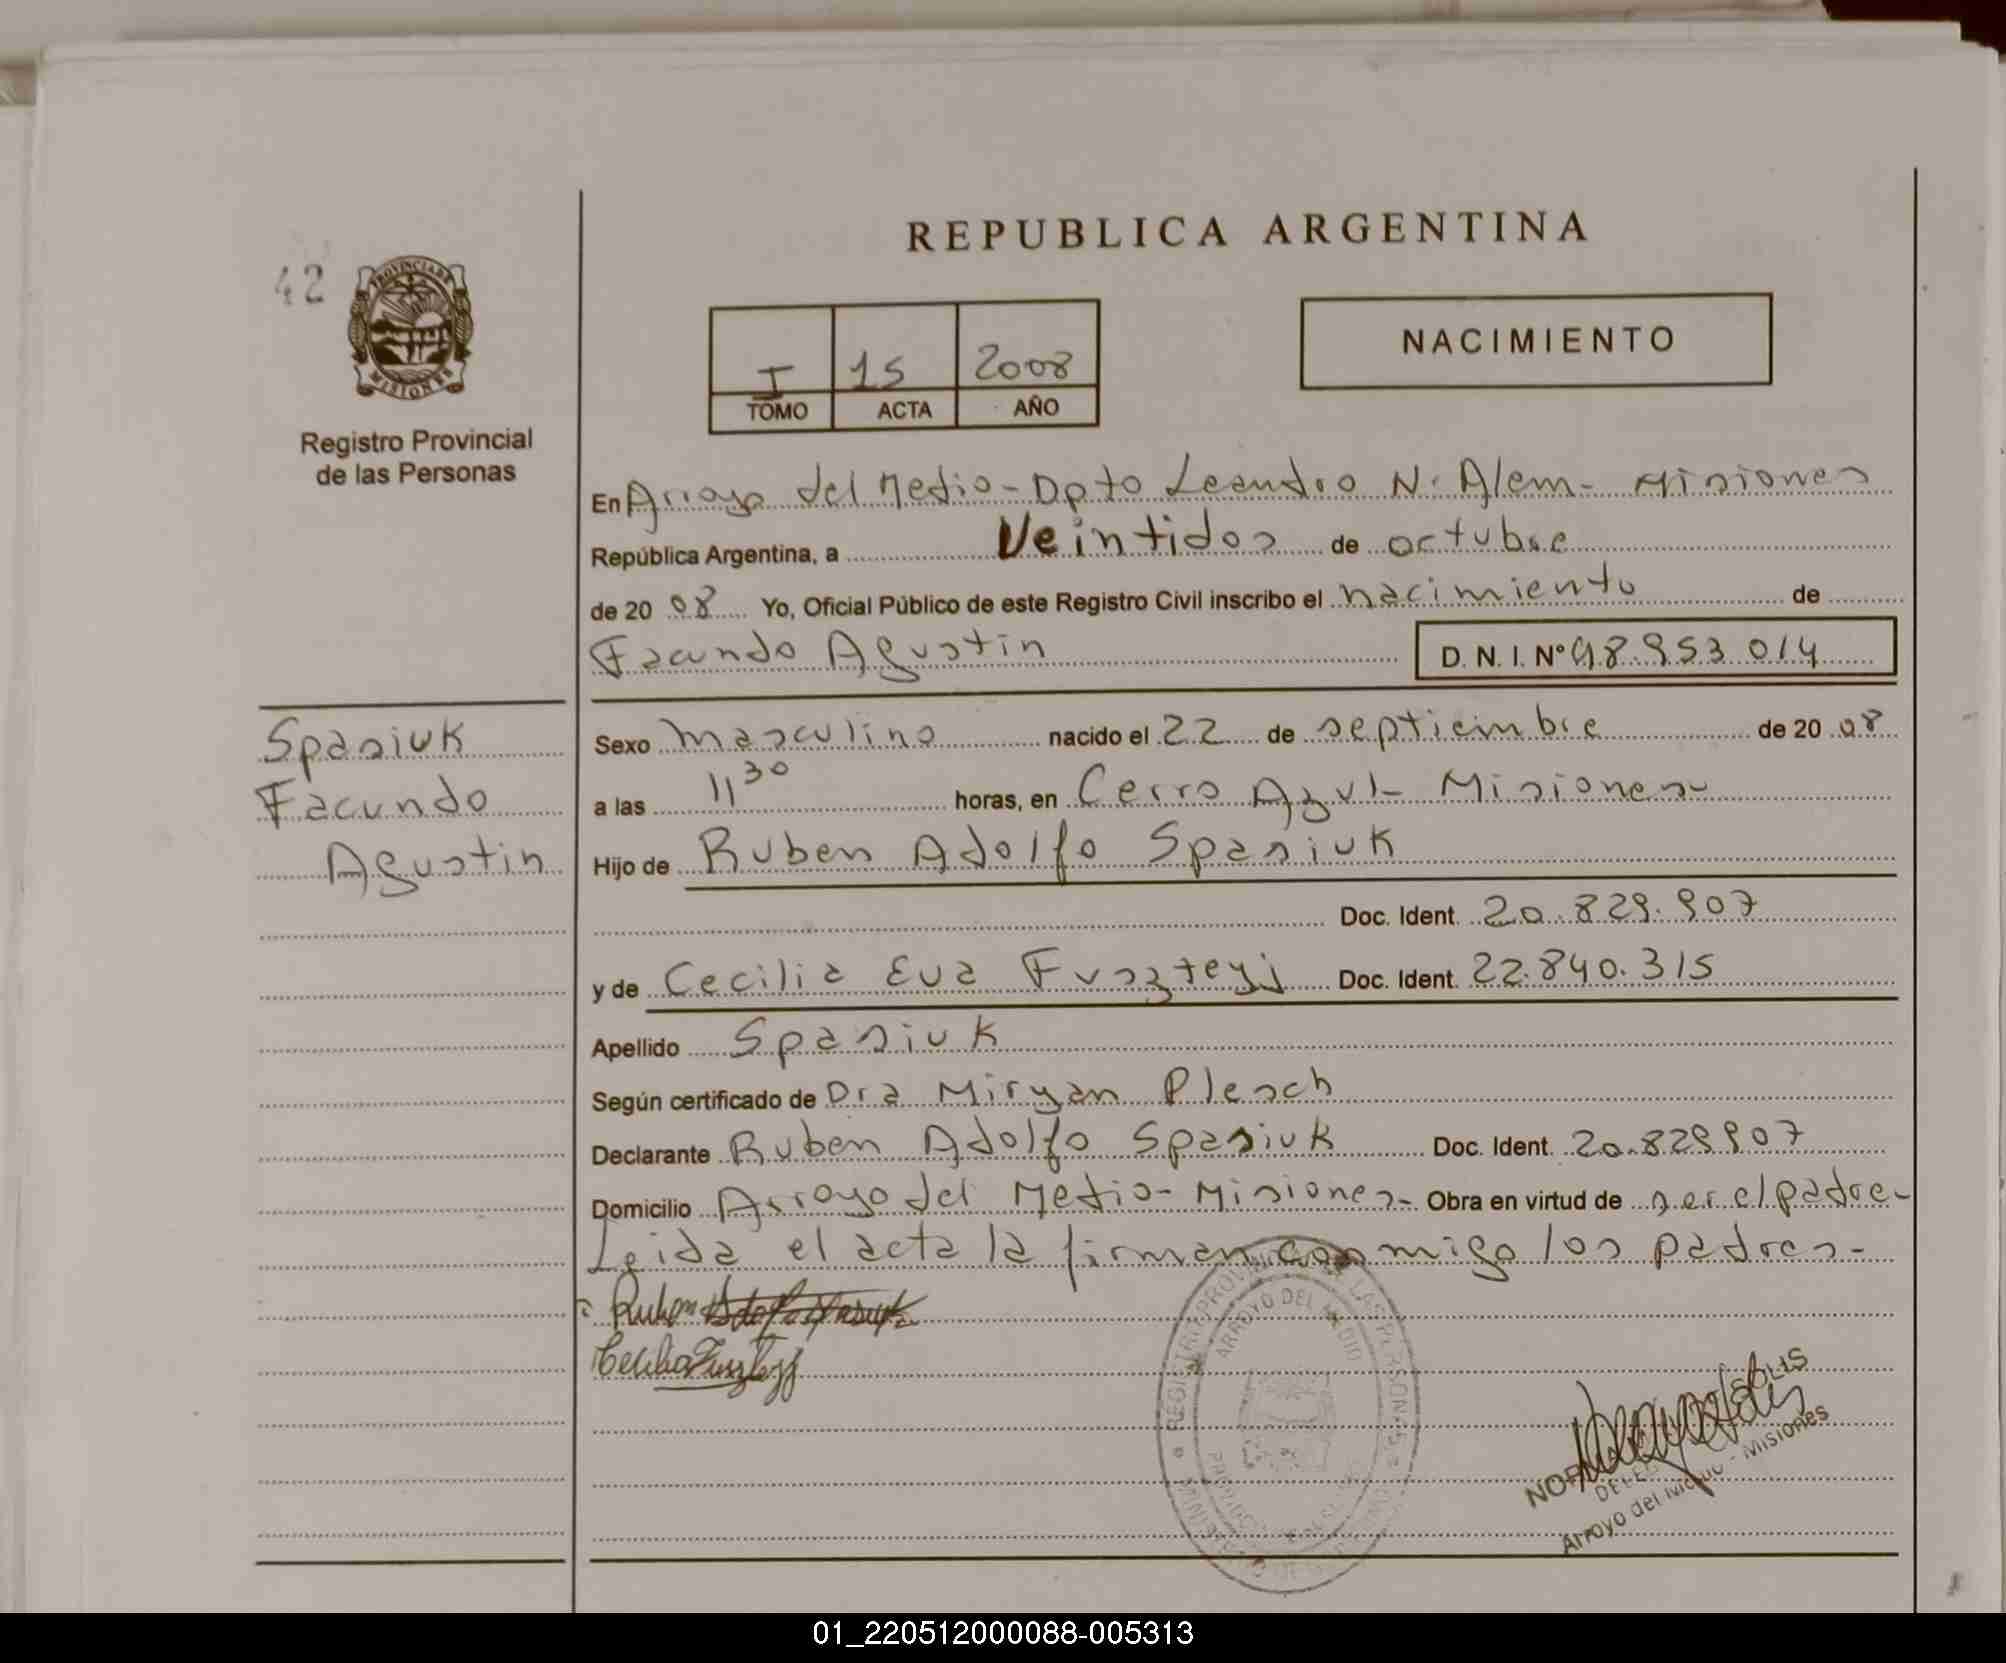 REPUBLICA ARGENTINA
42
PROVINCIA DE
MISIONES
Registro Provincial
de las Personas
I 15 2008
TOMO ACTA AÑO
NACIMIENTO
En Arroyo del Medio - Dpto Leandro N. Alem - Misiones
República Argentina, a Veintidos de octubre
de 20 08 Yo, Oficial Público de este Registro Civil inscribo el nacimiento de
Facundo Agustin D. N. I. Nº 48.953.014
Spasiuk
Facundo
Agustin
Sexo masculino nacido el 22 de septiembre de 20 08
a las 11 30 horas, en Cerro Azul - Misiones -
Hijo de Ruben Adolfo Spasiuk
Doc. Ident. 20.829.907
y de Cecilia Eva Fuszteyj Doc. Ident. 22.840.315
Apellido Spasiuk
Según certificado de Dra Miryan Plesch
Declarante Ruben Adolfo Spasiuk Doc. Ident. 20.829.907
Domicilio Arroyo del Medio - Misiones - Obra en virtud de ser el padre -
Leida el acta la firman conmigo los padres -
Ruben
Cecilia
ARROYO DEL MEDIO
Arroyo del Medio - Misiones
01_220512000088-005313